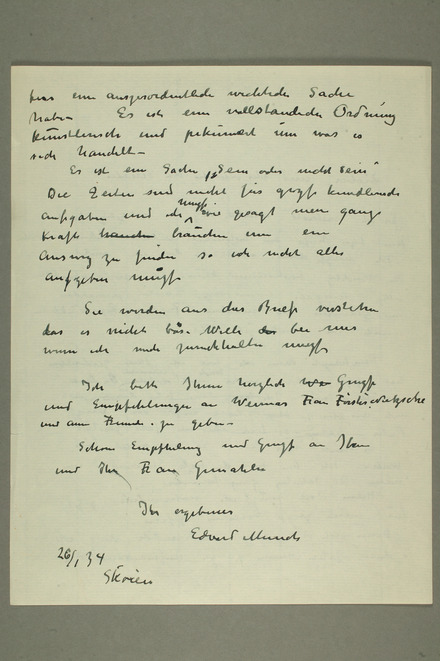 eine ausserordentliche wichtide Sache
haben Es ist eine vollständiche Ordnüng
künstlerisch und pekuniert um was es
sich handelt –
Es ist ein Sache „Sein oder nicht sein"
Die Zeiten sind nicht für grosse kunstlerische
aufgaben und ich muss wie gesagt mein ganze
Krafte brauchen um ein
Ausweg zu finden so ich nicht alles
aufgeben muss
Sie werden aus dies Brief verstehen
das es nicht böse Wille bei mir
wenn ich mich zurückhalten muss
Ich bitte Ihnen herzlich Grüsse
und Empfehlungen an Weimar Frau Förster-Nietzsche
und an Freunde zu geben –
Schöne Empfehlung und Gruss an Ihnen
und Ihr Frau Gemahlin
Ihr ergebener
Edvard Munch
26/1 34
Skøien